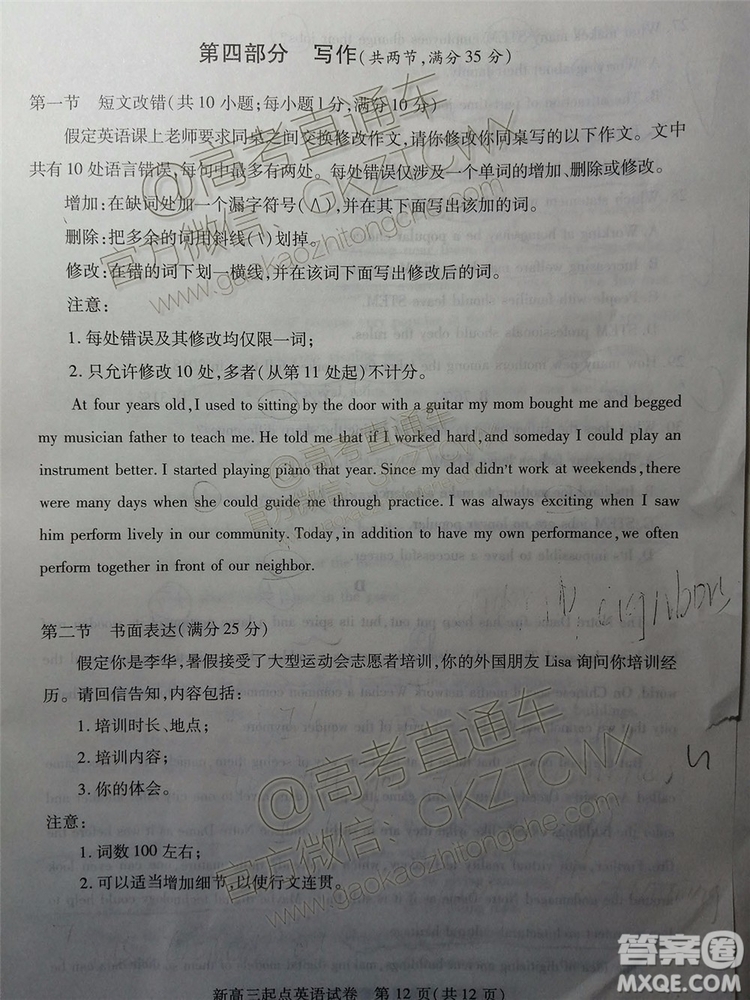 第四部分　写作(共两节,满分35分)
第一节　短文改错(共10小题;每小题1分,满分10分)
假定英语课上老师要求同桌之间交换修改作文,请你修改你同桌写的以下作文。文中
共有10处语言错误,每句中最多有两处。每处错误仅涉及一个单词的增加、删除或修改。
增加:在缺词处加一个漏字符号(∧),并在其下面写出该加的词。
删除:把多余的词用斜线(\)划掉。
修改:在错的词下划一横线,并在该词下面写出修改后的词。
注意:
1. 每处错误及其修改均仅限一词;
2. 只允许修改10处,多者(从第11处起)不计分。
At four years old, I used to sitting by the door with a guitar my mom bought me and begged
my musician father to teach me. He told me that if I worked hard, and someday I could play an
instrument better. I started playing piano that year. Since my dad didn't work at weekends, there
were many days when she could guide me through practice. I was always exciting when I saw
him perform lively in our community. Today, in addition to have my own performance, we often
perform together in front of our neighbor.
第二节　书面表达(满分25分)
假定你是李华,暑假接受了大型运动会志愿者培训,你的外国朋友Lisa询问你培训经
历。请回信告知,内容包括:
1. 培训时长、地点;
2. 培训内容;
3. 你的体会。
注意:
1. 词数100左右;
2. 可以适当增加细节,以使行文连贯。
新高三起点英语试卷　第12页(共12页)
@高考直通车
官方微信:GKZTCWX
www.gaokaozhitongche.com
@高考直通车
官方微信:GKZTCWX
www.gaokaozhitongche.com
答案圈
MXQE.COM